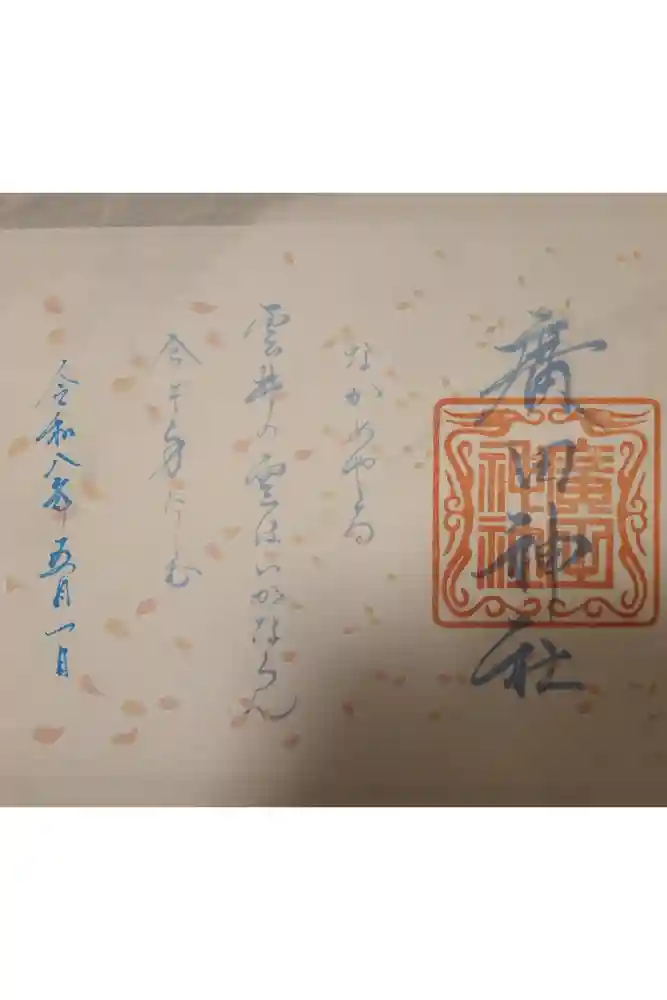 廣田神社
廣田
神社
なかめやる
雲井の雲はいかならん
にしむ
令和八年五月一日